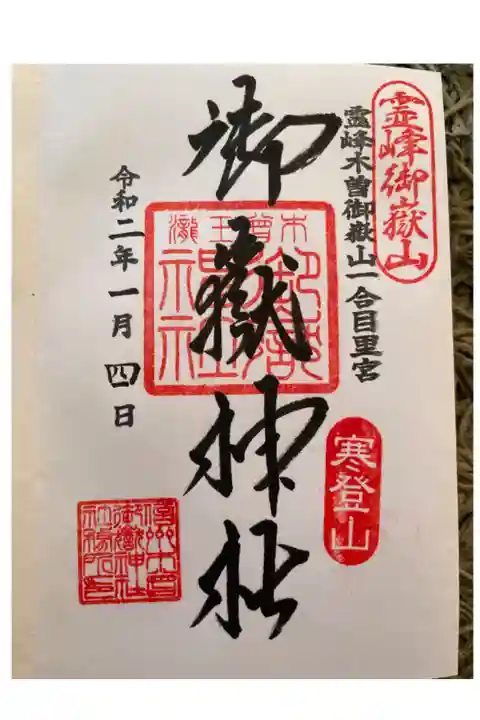 霊峰御嶽山
霊峰木曽御嶽山一合目里宮
寒登山
御嶽神社
木曽王瀧
御嶽神社
令和二年一月四日